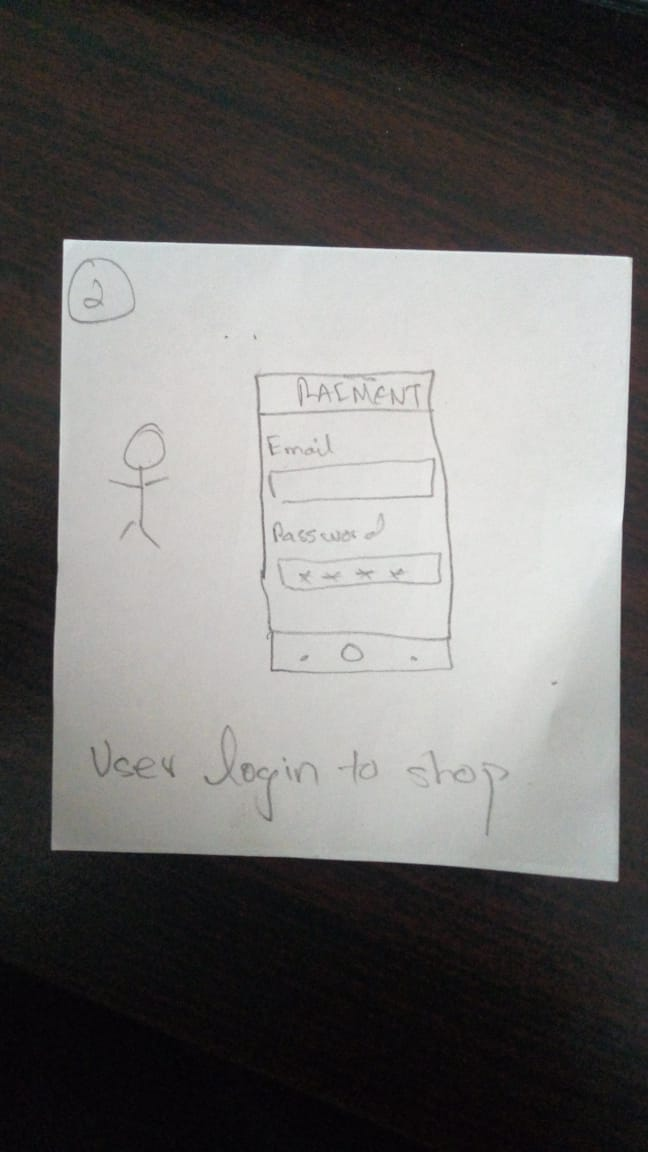 2
RAIMENT
Email
Password
****
User login to shop